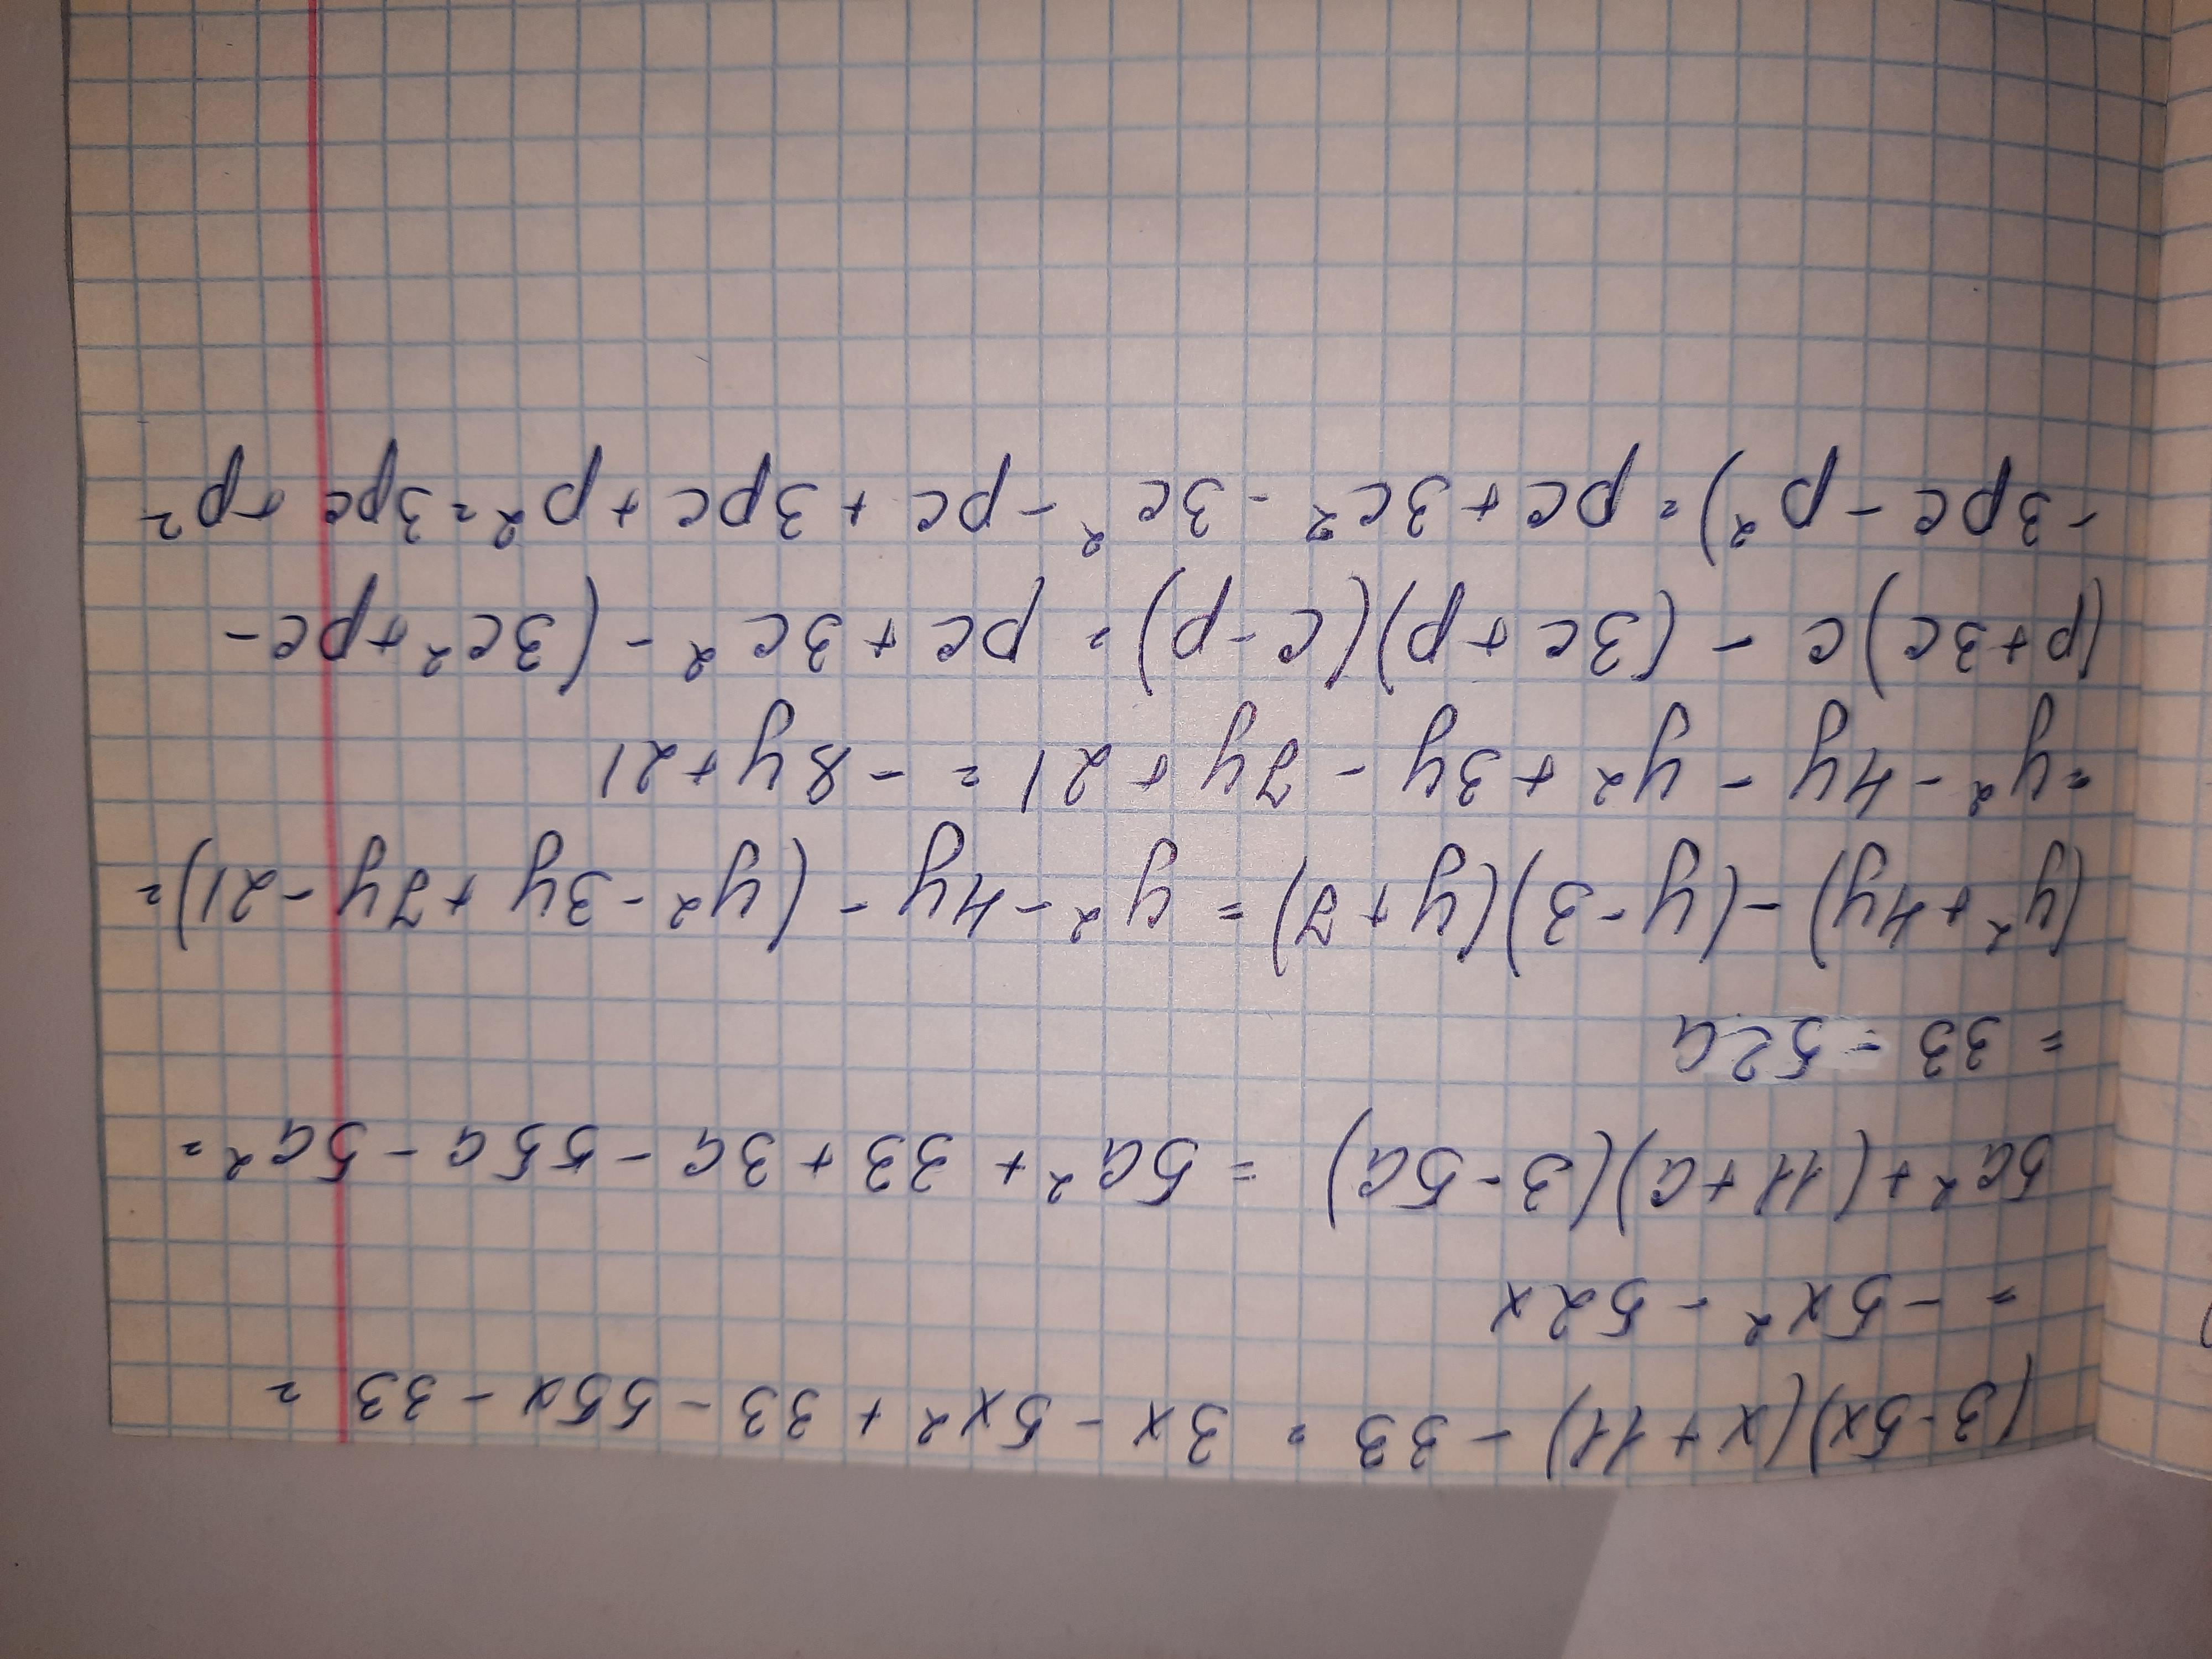 (3-5x)(x+11)-33 = 3x-5x²+33-55x-33 =
= -5x²-52x
5a²+(11+a)(3-5a) = 5a²+33+3a-55a-5a² =
= 33-52a
(y²+4y)-(y-3)(y+7) = y²-4y-(y²-3y+7y-21) =
= y²-4y-y²+3y-7y+21 = -8y+21
(p+3c)c-(3c+p)(c-p) = pc+3c²-(3c²+pc-
-3pc-p²) = pc+3c²-3c²-pc+3pc+p² = 3pc+p²